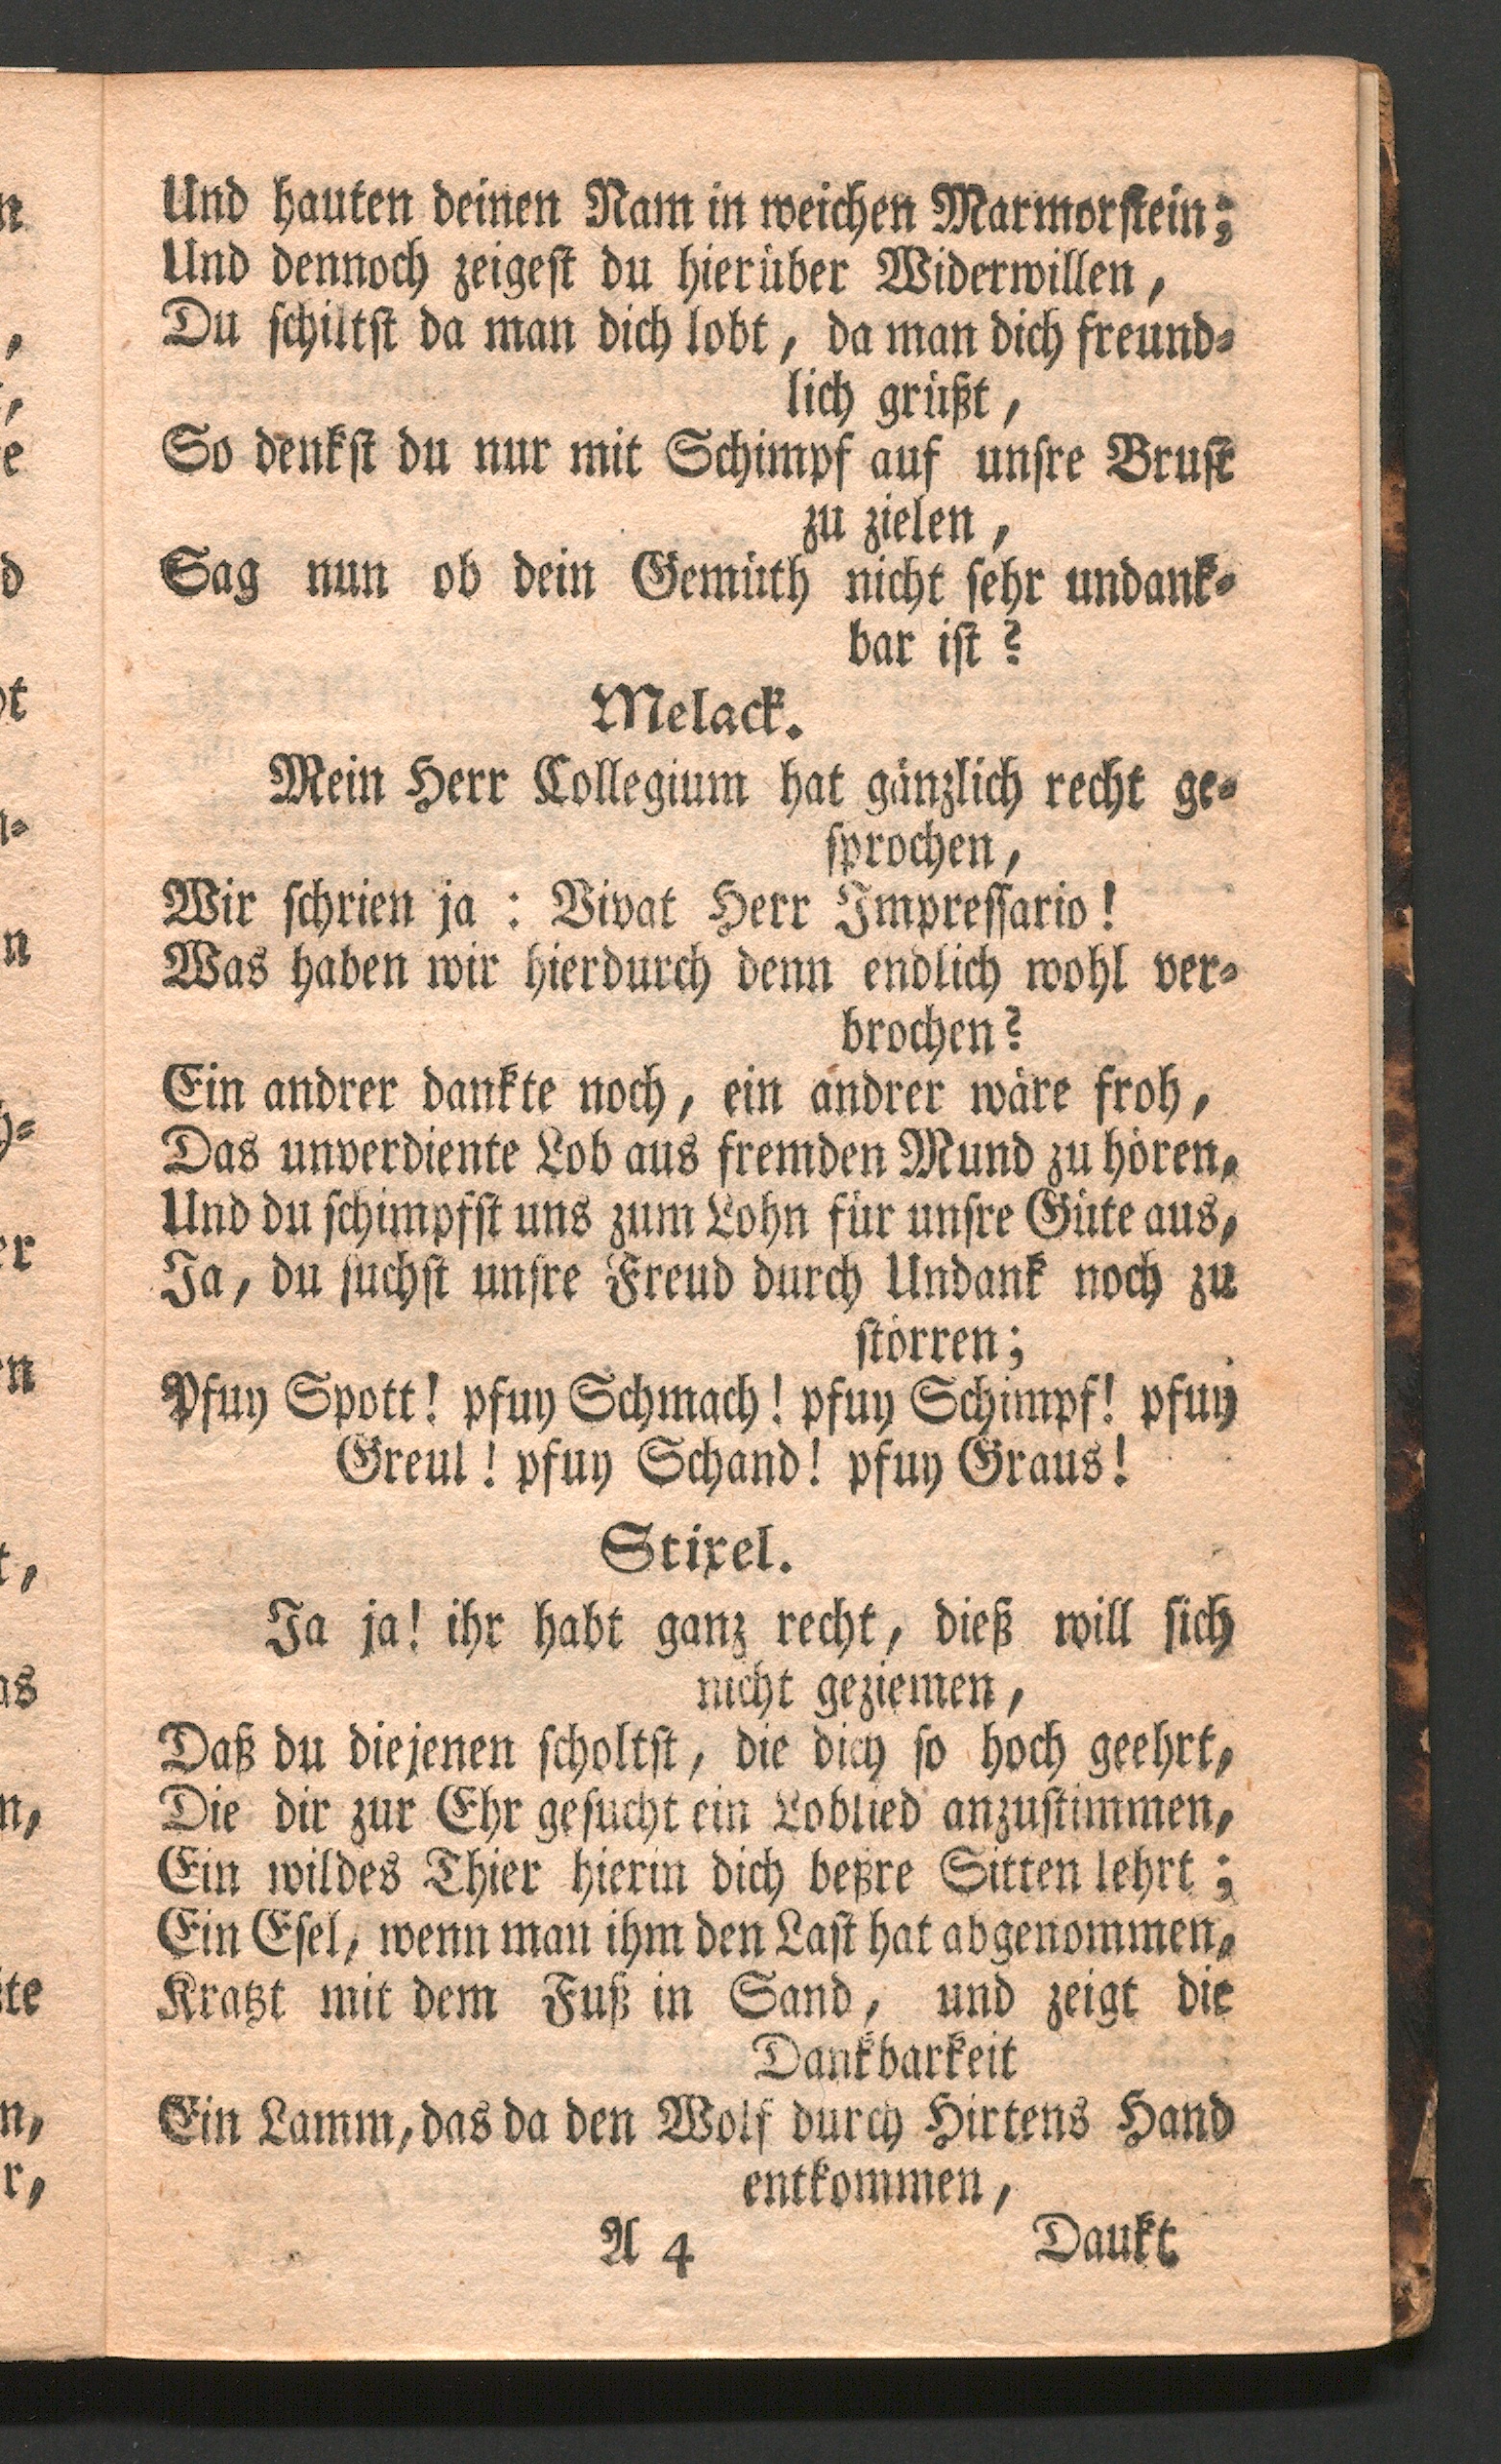 Und hauten deinen Nam in weichen Marmorstein;
Und dennoch zeigest du hierüber Widerwillen,
Du schiltst da man dich lobt, da man dich freund-
lich grüßt,
So denkst du nur mit Schimpf auf unsre Brust
zu zielen,
Sag nun ob dein Gemüth nicht sehr undank-
bar ist?
Melack.
Mein Herr Collegium hat gänzlich recht ge-
sprochen,
Wir schrien ja : Vivat Herr Impressario!
Was haben wir hierdurch denn endlich wohl ver-
brochen?
Ein andrer dankte noch, ein andrer wäre froh,
Das unverdiente Lob aus fremden Mund zu hören,
Und du schimpfst uns zum Lohn für unsre Güte aus,
Ja, du suchst unsre Freud durch Undank noch zu
störren;
Pfuy Spott! pfuy Schmach! pfuy Schimpf! pfuy
Greul! pfuy Schand! pfuy Graus!
Stixel.
Ja ja! ihr habt ganz recht, dieß will sich
nicht geziemen,
Daß du diejenen scholtst, die dich so hoch geehrt,
Die dir zur Ehr gesucht ein Loblied anzustimmen,
Ein wildes Thier hierin dich beßre Sitten lehrt;
Ein Esel, wenn man ihm den Last hat abgenommen,
Kratzt mit dem Fuß in Sand, und zeigt die
Dankbarkeit
Ein Lamm, das da den Wolf durch Hirtens Hand
entkommen,
A 4 Daukt